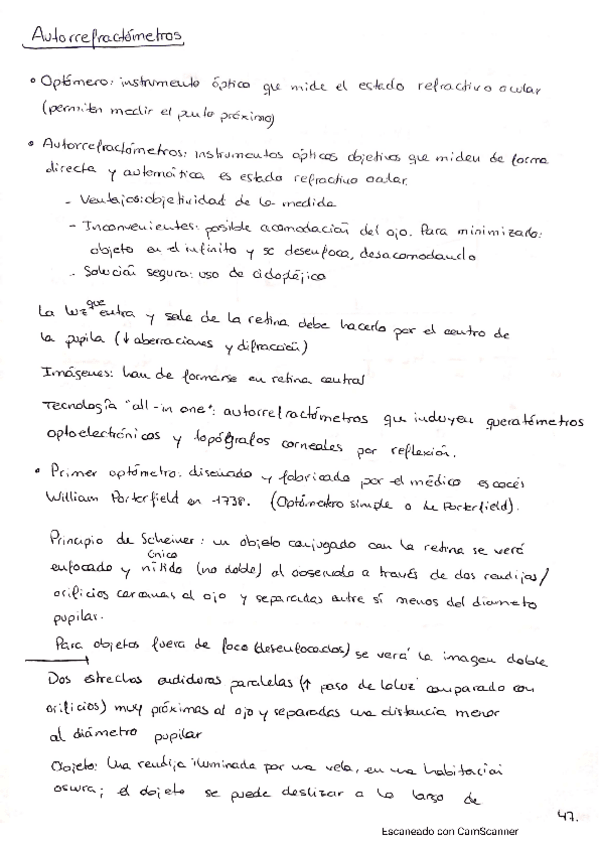 Autorrefractómetros
• Optómero: instrumento óptico que mide el estado refractivo ocular
(permiten medir el punto próximo)
• Autorrefractómetros: instrumentos ópticos objetivos que miden de forma
directa y automática es estado refractivo ocular.
- Ventajas: objetividad de la medida
- Inconvenientes: posible acomodación del ojo. Para minimizarlo:
objeto en el infinito y se desenfoca, desacomodando
- Solución segura: uso de cicloplégico
La luz que entra y sale de la retina debe hacerlo por el centro de
la pupila (↓ aberraciones y difracción)
Imágenes: han de formarse en retina central
Tecnología "all-in one": autorrefractómetros que incluyen queratómetros
optoelectrónicos y topógrafos corneales por reflexión.
• Primer optómetro: diseñado y fabricado por el médico escocés
William Porterfield en 1738. (Optómetro simple o de Porterfield).
Principio de Scheiner: un objeto conjugado con la retina se verá
enfocado y único nítido (no doble) al observarlo a través de dos rendijas/
orificios cercanas al ojo y separadas entre sí menos del diametro
pupilar.
Para objetos fuera de foco (desenfocados) se verá la imagen doble
Dos estrechas hendiduras paralelas (↑ paso de la luz comparado con
orificios) muy próximas al ojo y separadas una distancia menor
al diámetro pupilar
Objeto: Una rendija iluminada por una vela, en una habitación
oscura; el objeto se puede deslizar a lo largo de
47.
Escaneado con CamScanner